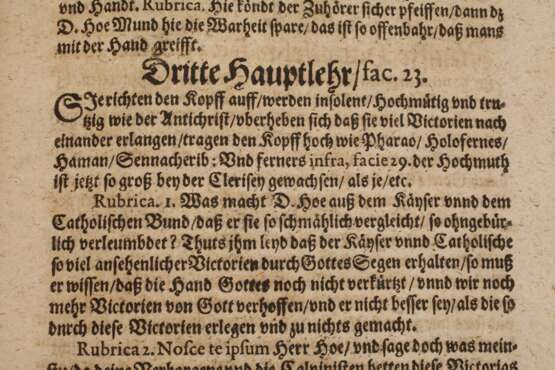 vnd Handt. Rubrica. Hie köndt der Zuhörer sicher pfeiffen/dann dz
D. Hoe Mund hie die Warheit spare/das ist so offenbahr/daß mans
mit der Hand greifft.
Dritte Hauptlehr/fac. 23.
SJe richten den Kopff auff/werden insolent/Hochmütig vnd tru-
tzig wie der Antichrist/vberheben sich daß sie viel Victorien nach
einander erlangen/tragen den Kopff hoch wie Pharao/Holofernes/
Haman/Sennacherib: Vnd ferners infra, facie 29. der Hochmuth
ist jetzt so groß bey der Clerisey gewachsen/als je/etc.
Rubrica. 1. Was macht D. Hoe auß dem Käyser vnnd dem
Catholischen Bund/daß er sie so schmählich vergleicht/so ohngebür-
lich verleumbdet? Thuts jhm leyd daß der Käyser vnnd Catholische
so viel ansehenlicher Victorien durch Gottes Segen erhalten/so muß
er wissen/daß die Hand Gottes noch nicht verkürtzt/vnnd wir noch
mehr Victorien von Gott verhoffen/vnd er nicht besser sey/als die so
durch diese Victorien erlegen vnd zu nichts gemacht.
Rubrica 2. Nosce te ipsum Herr Hoe/vnd sage doch was mein-
die Calvinisten hetten diese Victorias